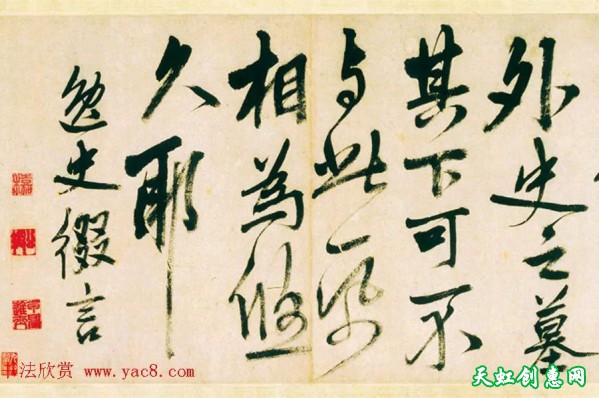 外史之墓
其下可不
与此
相為悠
久耶
史 言
法欣赏 www.yac8.com
天虹创惠网